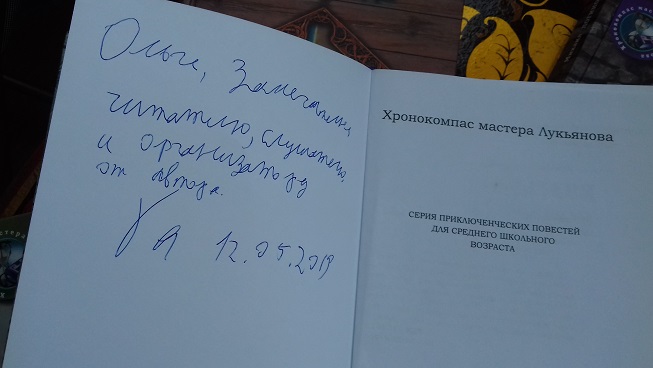 Ольге, Замечательному
читателю, слушателю,
и организатору
от автора.
12.05.2019
Хронокомпас мастера Лукьянова
СЕРИЯ ПРИКЛЮЧЕНЧЕСКИХ ПОВЕСТЕЙ
ДЛЯ СРЕДНЕГО ШКОЛЬНОГО
ВОЗРАСТА